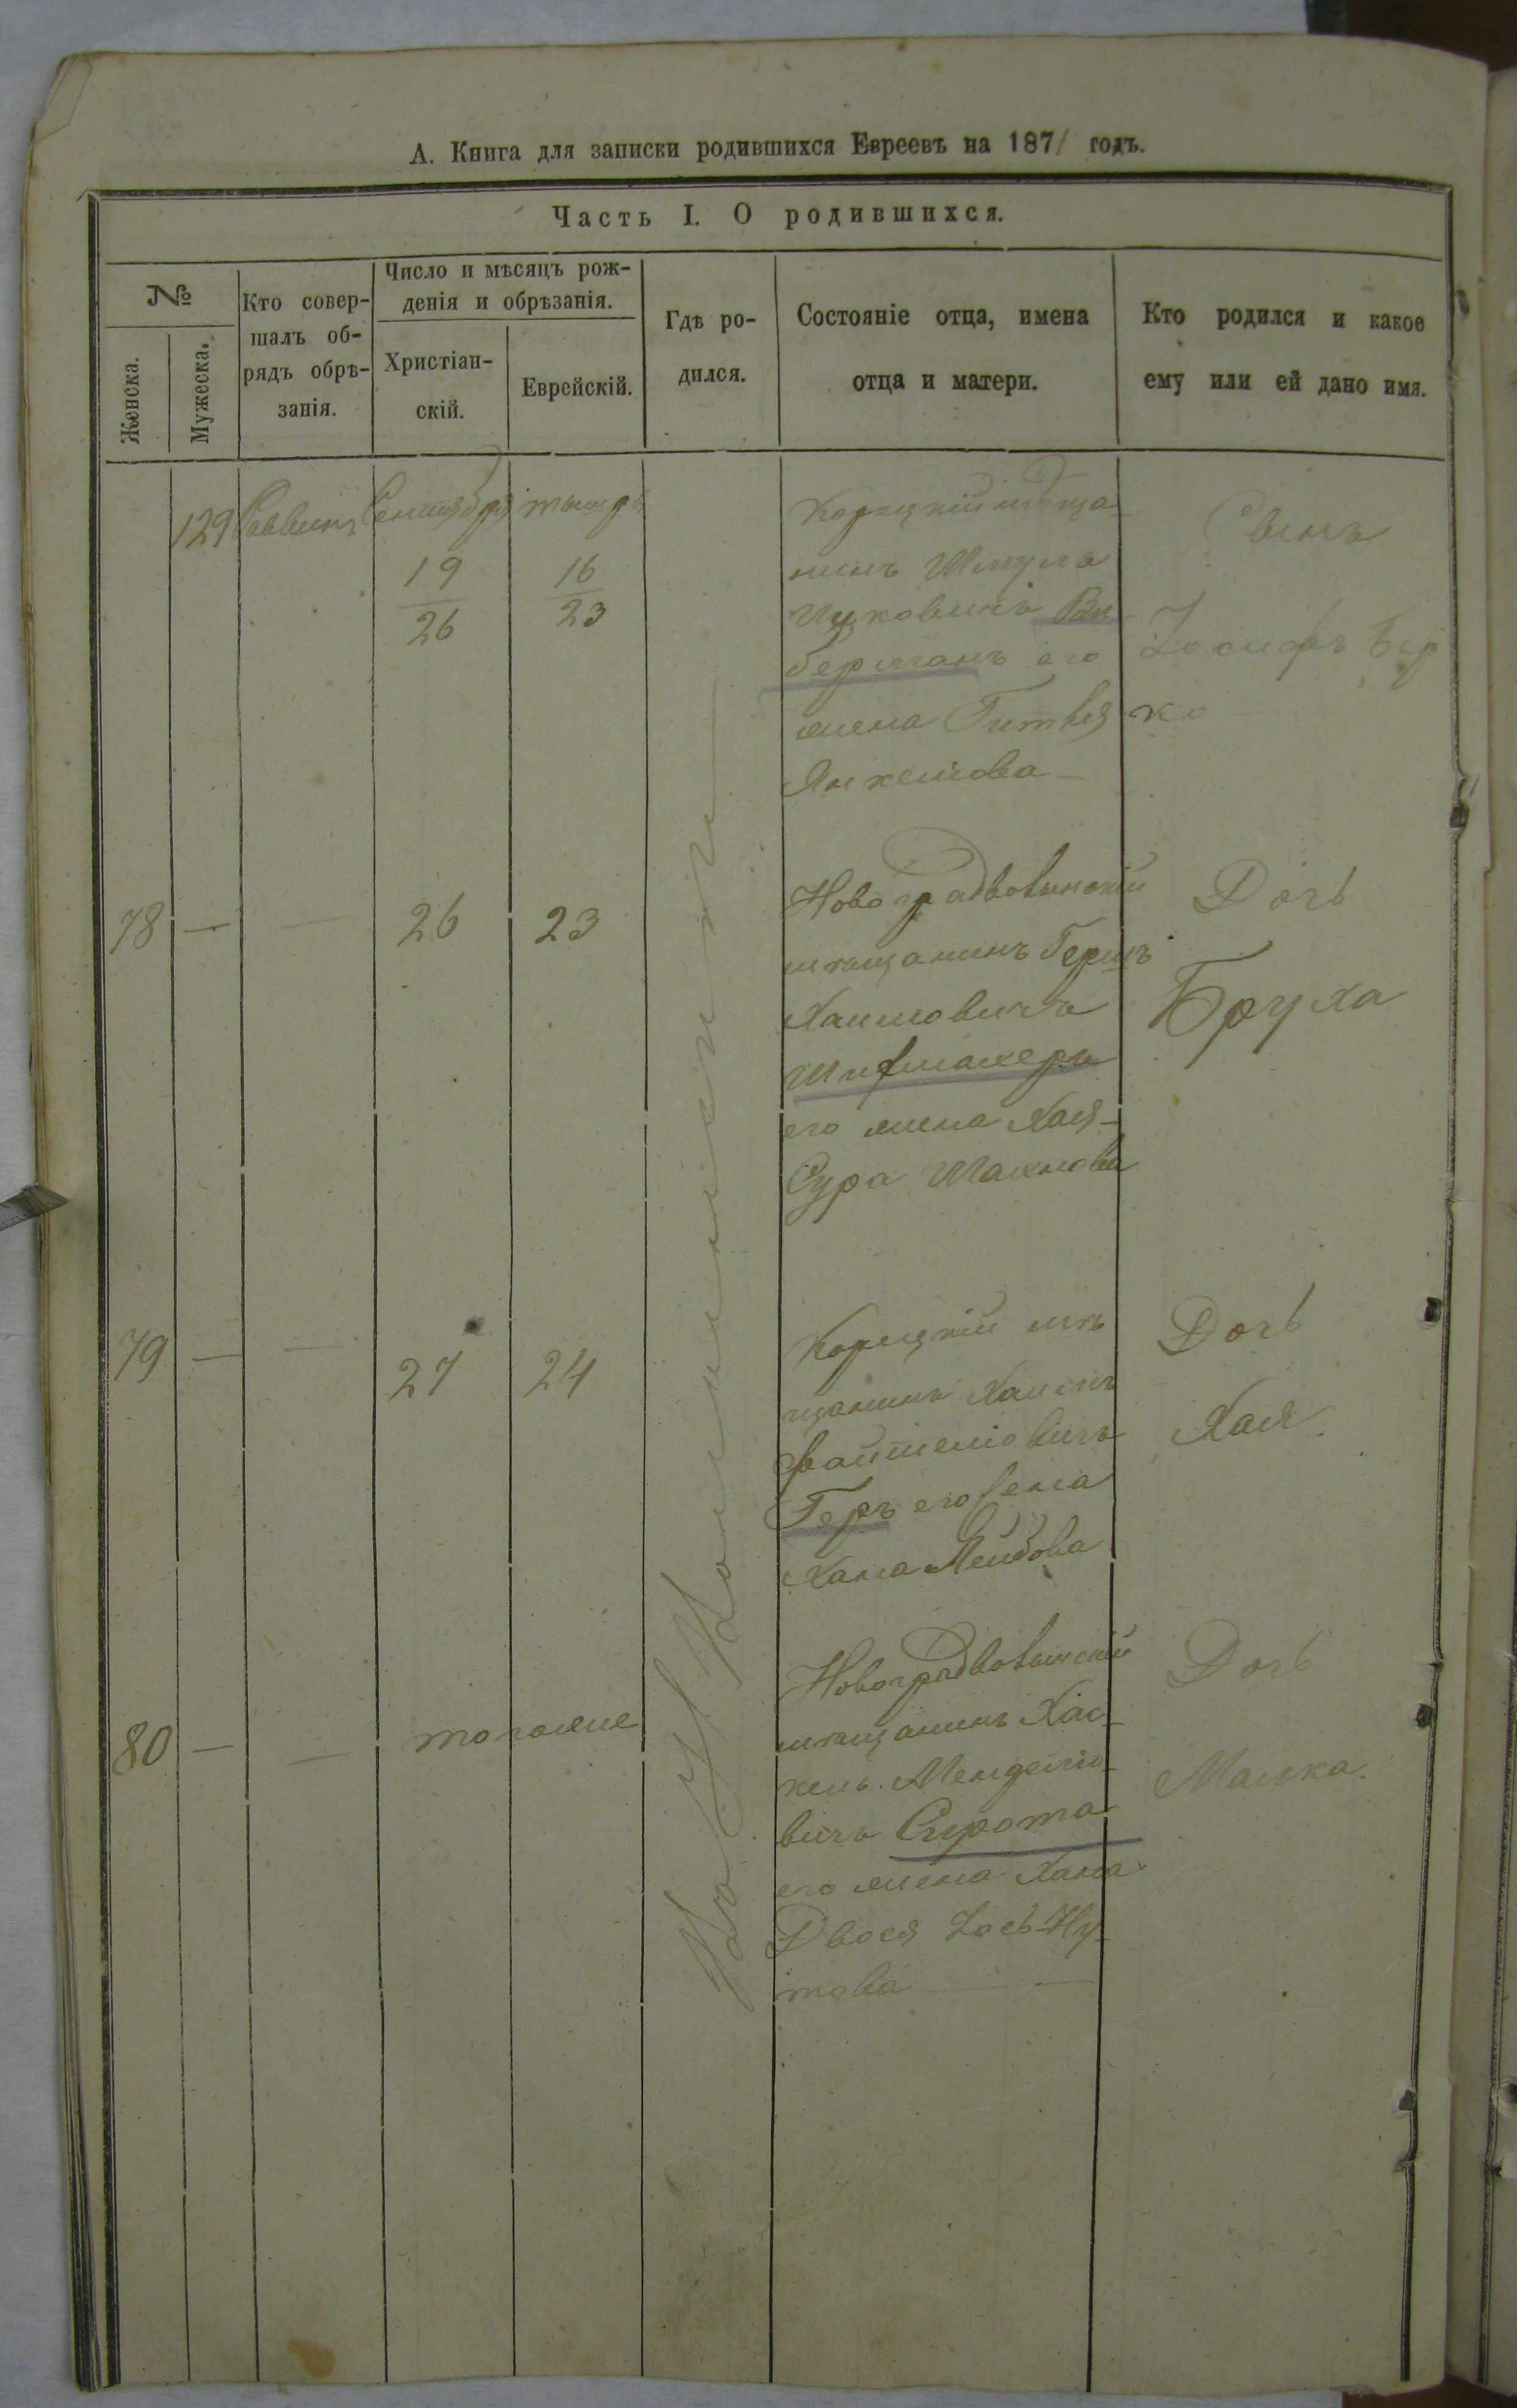 А. Книга для записки родившихся Евреевъ на 1871 годъ.
Часть I. О родившихся.
№
Женска.
Мужеска.
Кто совер-
шалъ об-
рядъ обрѣ-
занія.
Число и мѣсяцъ рож-
денія и обрѣзанія.
Христіан-
скій.
Еврейскій.
Гдѣ ро-
дился.
Состояніе отца, имена
отца и матери.
Кто родился и какое
ему или ей дано имя.
129
Раввинъ
Сентября
19
26
16
23
Корецкій мѣща
нинъ Шмуль
Ицковичъ
берманъ его
жена
Сынъ
Іосифъ Бер
ко
78 — —
26
23
Новоградволынскій
мѣщанинъ Гершъ
Хаимовичъ
Шифмахеръ
его жена Хая-
Сура Шахнова
Дочь
Бруха
79 — —
27
24
Корецкій мѣ
щанинъ Хаимъ
Гехъ его жена
Хана Лейбова
Дочь
Хая
80 — —
тогоже
Новоградволынскій
мѣщанинъ Хас-
кель Менделіо-
вичъ Сирота
его жена Хана
Двося Іось-Ну
това —
Дочь
Малка.